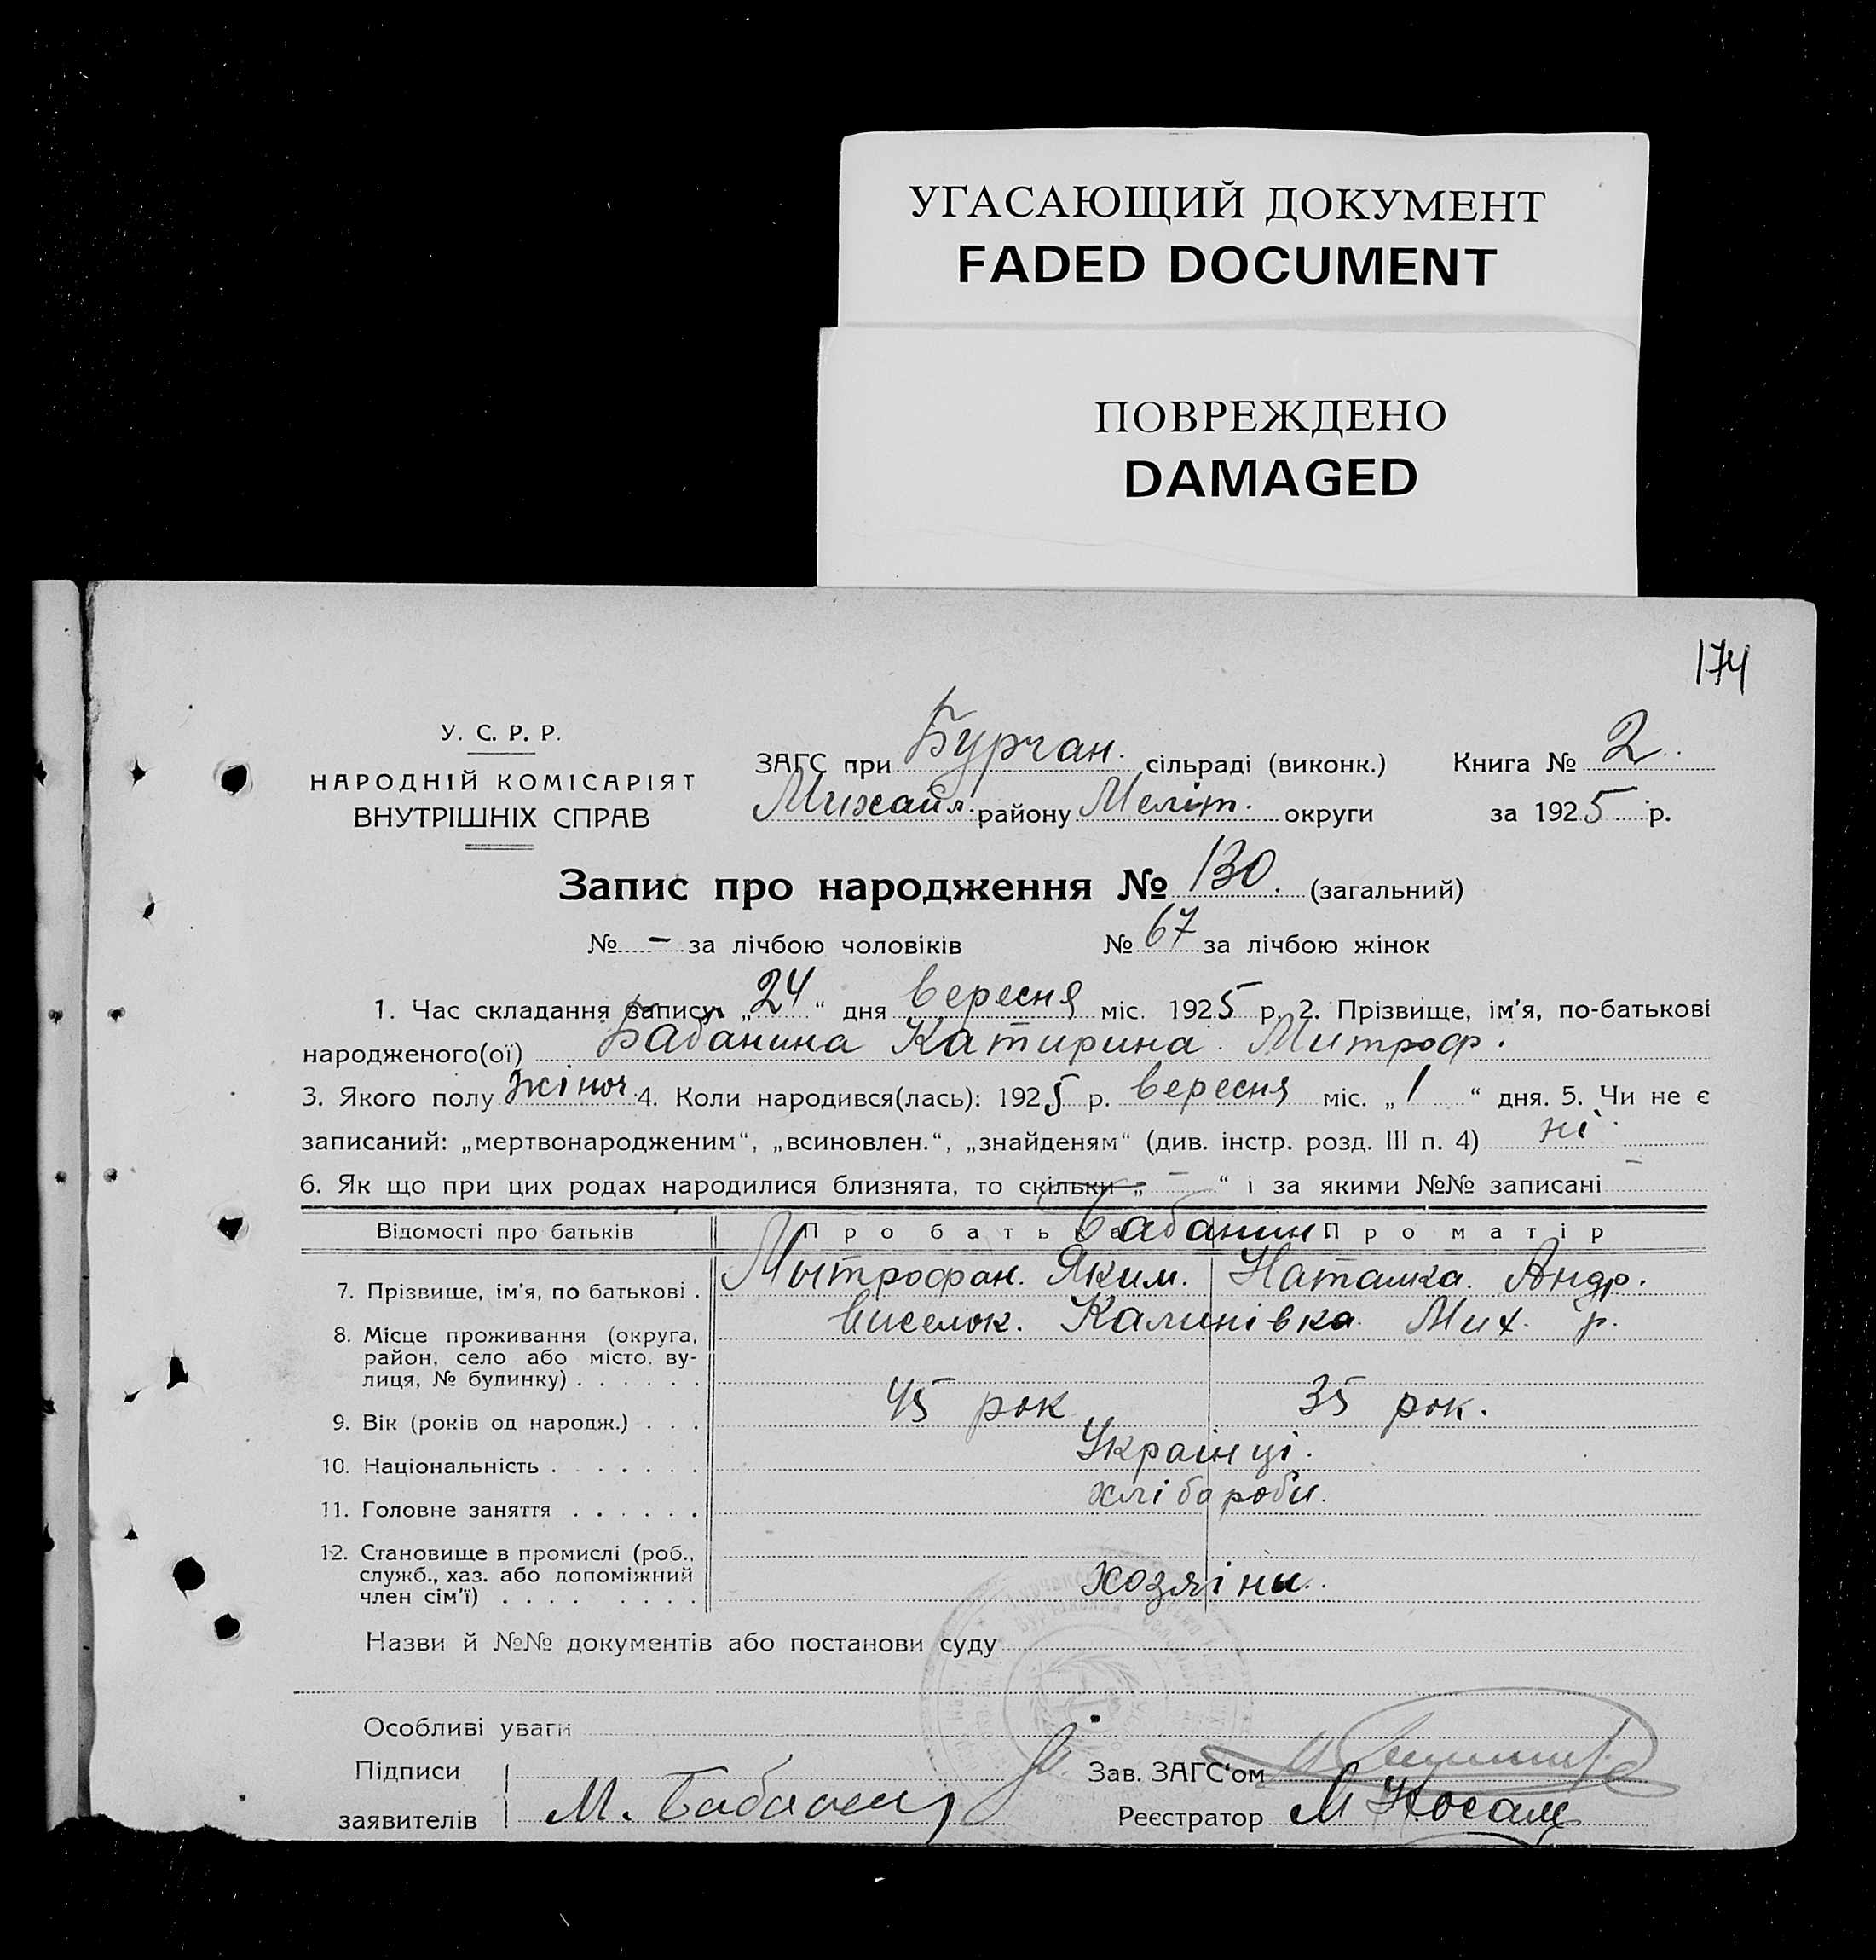 УГАСАЮЩИЙ ДОКУМЕНТ
FADED DOCUMENT
ПОВРЕЖДЕНО
DAMAGED
174
У. С. Р. Р.
НАРОДНІЙ КОМІСАРІЯТ
ВНУТРІШНІХ СПРАВ
ЗАГС при Бурчан. сільраді (виконк.) Книга № 2
Михайл. району Меліт. округи за 1925 р.
Запис про народження № 130. (загальний)
№ – за лічбою чоловіків № 67 за лічбою жінок
1. Час складання запису „24“ дня вересня міс. 1925 р. 2. Прізвище, ім’я, по-батькові
народженого(ої) Бабанина Катирина Митроф.
3. Якого полу жіноч. 4. Коли народився(лась): 1925 р. вересня міс. „1“ дня. 5. Чи не є
записаний: „мертвонародженим“, „всиновлен.“, „знайденям“ (див. інстр. розд. III п. 4) ні
6. Як що при цих родах народилися близнята, то скільки „ – “ і за якими №№ записані –
Відомості про батьків Про батька Про матір
Бабанин
7. Прізвище, ім’я, по батькові . Мытрофан. Яким. Наталка. Андр.
8. Місце проживання (округа, Виселок. Калинівка Мих. р.
район, село або місто, ву-
лиця, № будинку) . . . . . .
9. Вік (років од народж.) . . . 45 рок 35 рок.
10. Національність . . . . . . . Українці.
11. Головне заняття . . . . . . хлібороби.
12. Становище в промислі (роб.,
служб., хаз. або допоміжний
член сім’ї) . . . . . . . . хозяіни.
Назви й №№ документів або постанови суду
Особливі уваги
Підписи Зав. ЗАГС‘ом
заявителів М. Бабанин Реєстратор М Носач